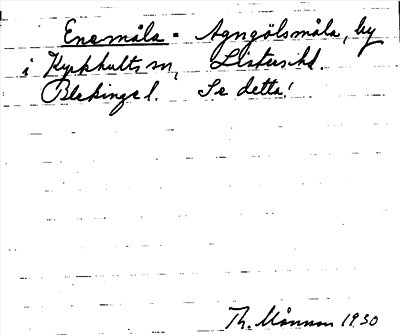 Enemåla = Agngölsmåla, by
i Kyrkhults sn, Listers hd.
Blekinge l. Se detta!
Th. Månsson 1930